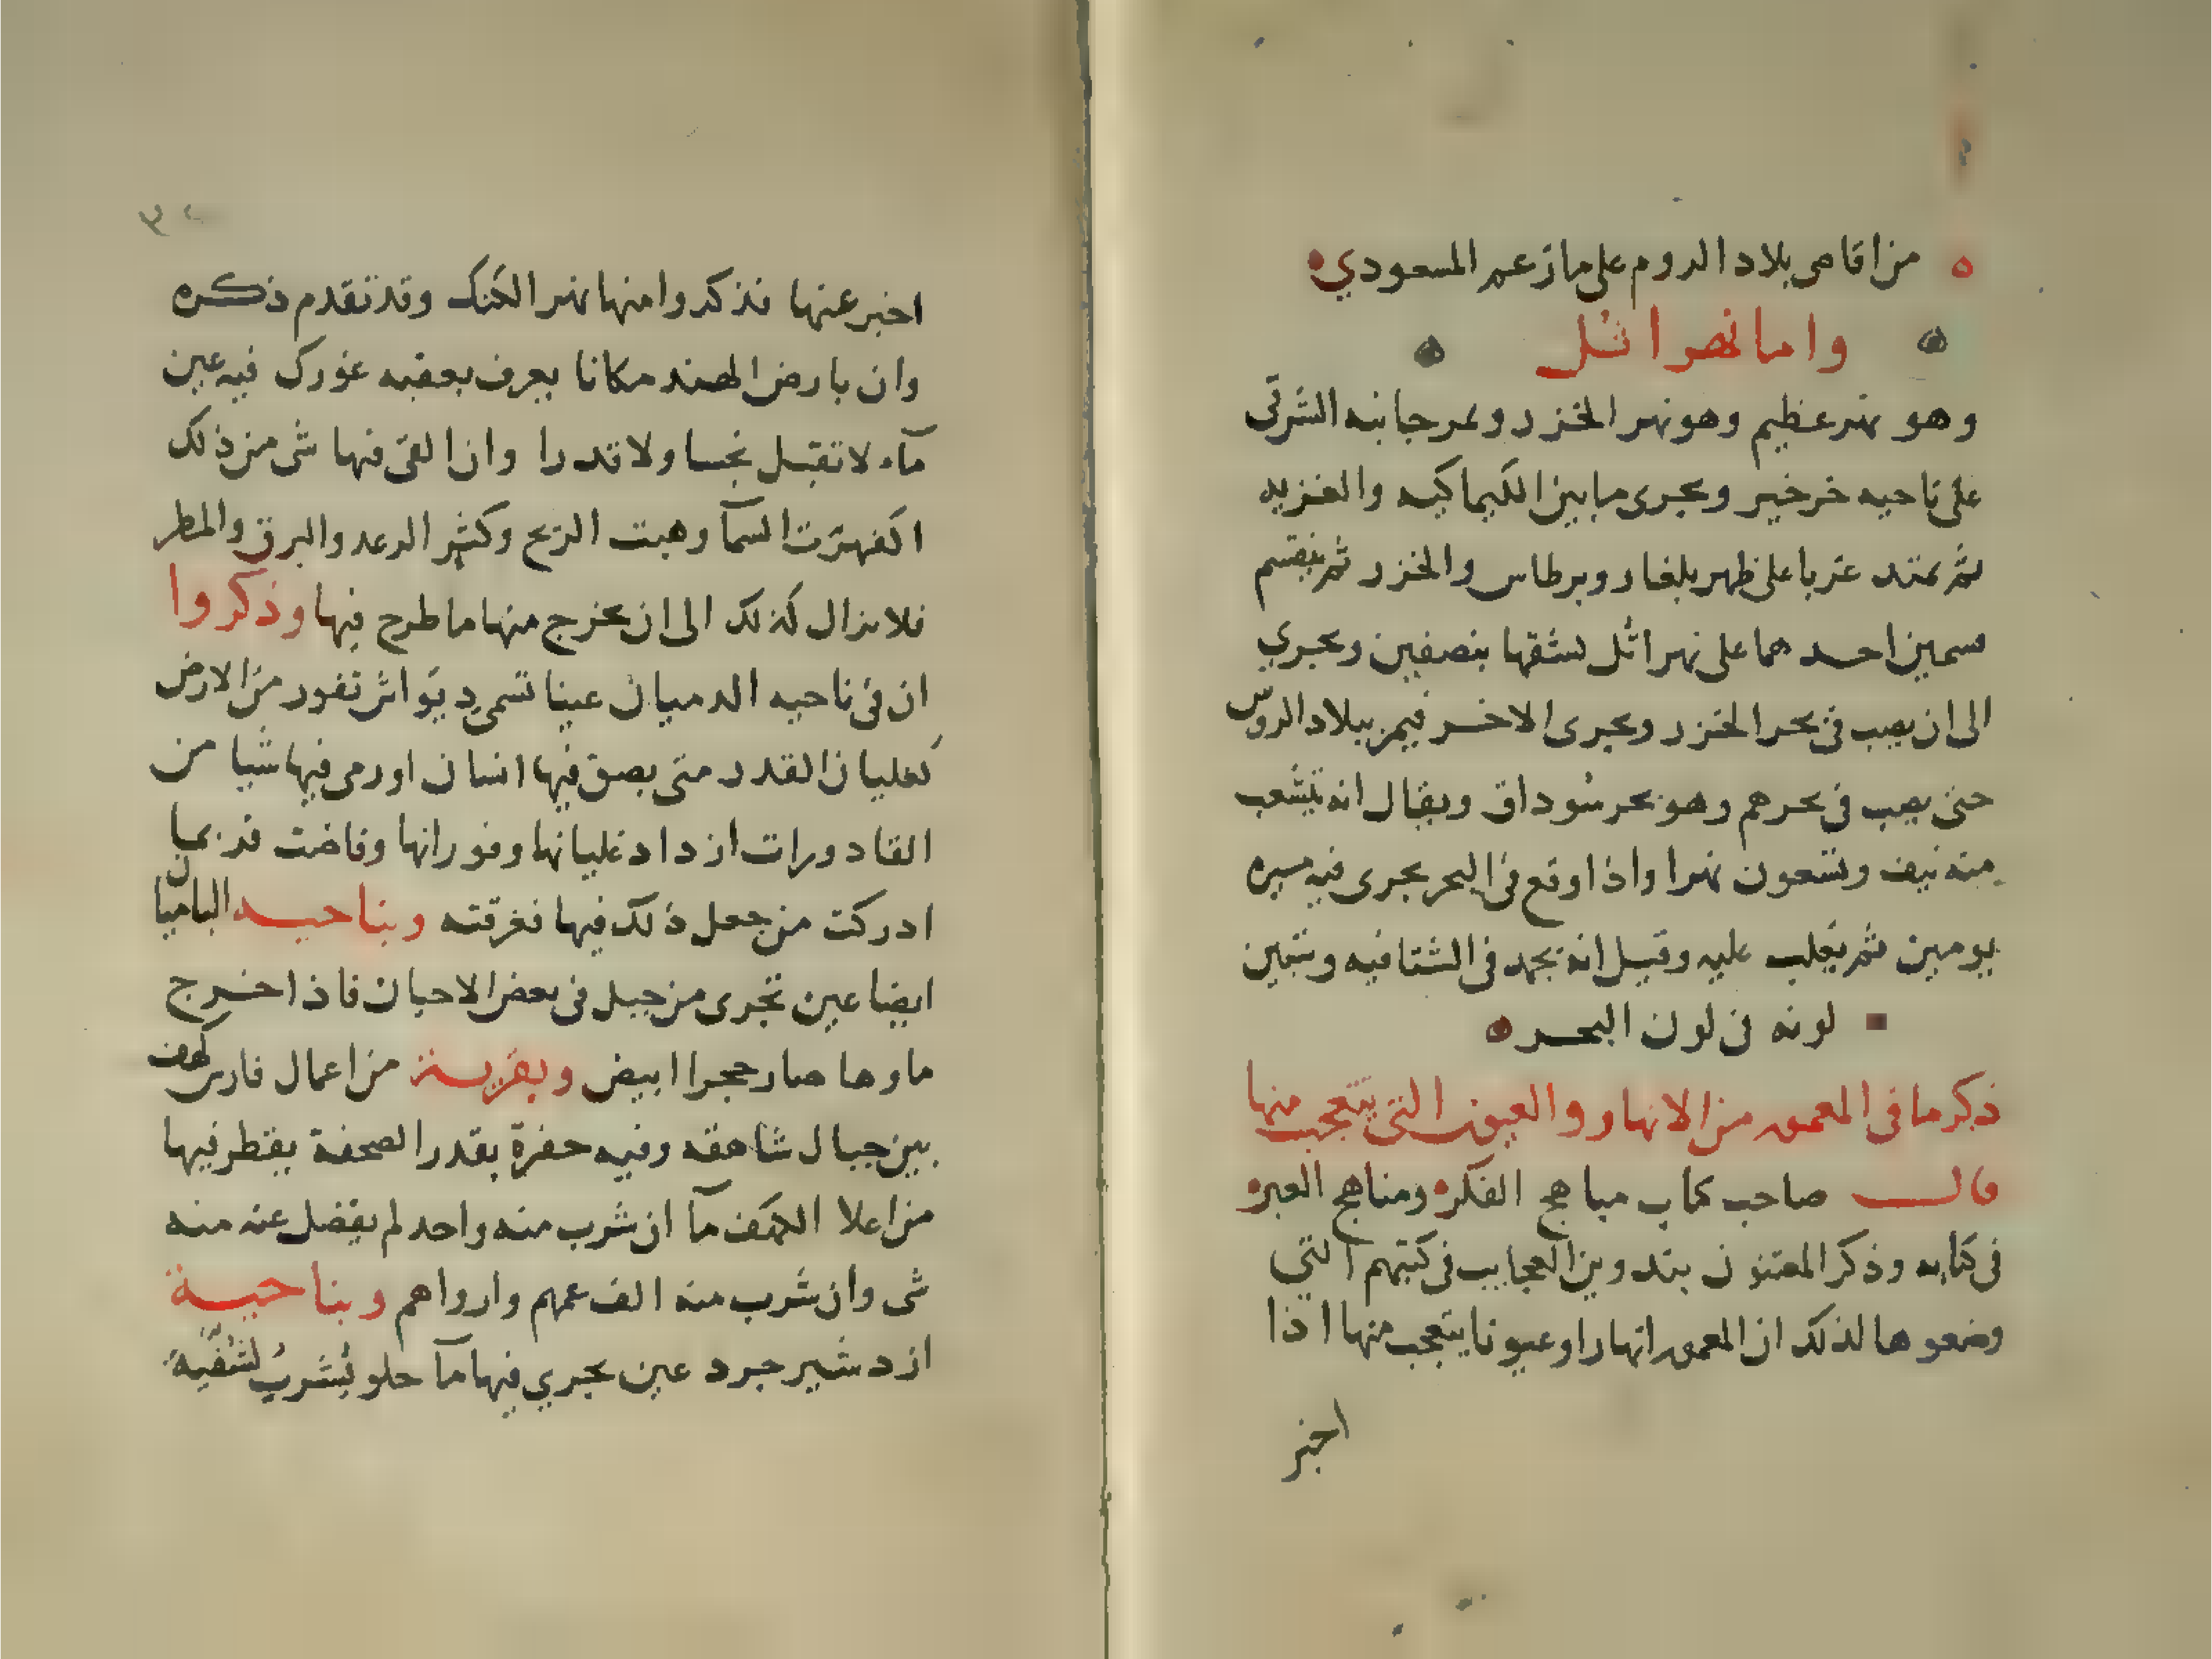 من اقاصى بلاد الروم على ما زعم المسعودي
واما نهر اثل
وهو نهر عظيم وهو نهر الخزر ويمر جانبه الشرقي
على ناحيه خرخيز ويجرى ما بين الكيماكيه والغزيه
ثم يمتد غربا على ظهر بلغار وبرطاس والخزر ثم ينقسم
قسمين احدهما على نهر اثل يشقها بنصفين ويجري
الى ان يصب فى بحر الخزر ويجرى الاخر فيمر ببلاد الروس
حتى يصب فى بحرهم وهو بحر سوداق ويقال انه يتشعب
منه نيف وتسعون نهرا واذا وقع فى البحر يجرى فيه مسيره
يومين ثم يغلب عليه وقيل انه يجمد فى الشتا فيه ويتبين
لونه فى لون البحر
ذكر ما فى المعمور من الانهار والعيون التى يتعجب منها
قال صاحب كتاب مباهج الفكر ومناهج العبر
فى كتابه وذكر المعتنون بتدوين العجايب فى كتبهم التي
وضعوها لذلك ان المعمور انهارا وعيونا يتعجب منها اذا
اخبر
اخبر عنها فذكروا منها نهر الكنك وقد تقدم ذكره
وان بارض الهند مكانا يعرف بعقبه غورك فيه عين
مآء لا تقبل نجسا ولا قدرا وان القى فيها شى من ذلك
اكفهرت السمآ وهبت الريح وكثر الرعد والبرق والمطر
فلا يزال كذلك الى ان يخرج منها ما طرح فيها وذكروا
ان فى ناحيه الدميان عينا تسمى ديواش تفور من الارض
كغليان القدر متى بصق فيها انسان او رمى فيها شيا من
القادورات ازداد غليانها وفورانها وفاضت فربما
ادركت من جعل ذلك فيها فغرقته وبناحيه الباميان
ايضا عين تجرى من جبل فى بعض الاحيان فاذا اخرج
ماوها صار حجرا ابيض وبقرية من اعمال فارس كهف
بين جبال شاهقه وفيه حفرة بقدر الصحفة يقطر فيها
من اعلا الكهف مآ ان شرب منه واحد لم يفضل عنه منه
شى وان شرب منه الف عمهم وارواهم وبناحية
ازدشير جرد عين يجري فيها مآ حلو يشرب لتنقية